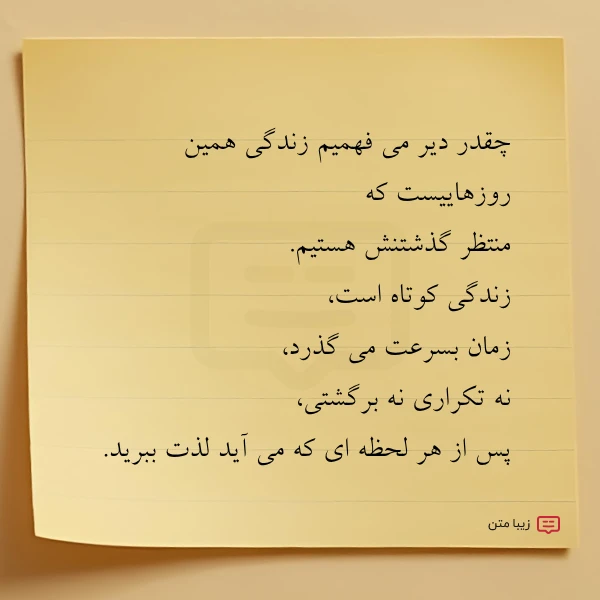 چقدر دیر می فهمیم زندگی همین
روزهاییست که
منتظر گذشتنش هستیم.
زندگی کوتاه است،
زمان بسرعت می گذرد،
نه تکراری نه برگشتی،
پس از هر لحظه ای که می آید لذت ببرید.
زیبا متن